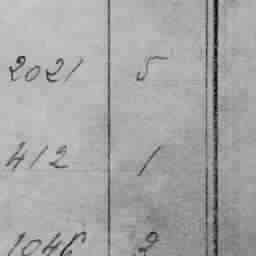 2021 5
412 1
1046 2